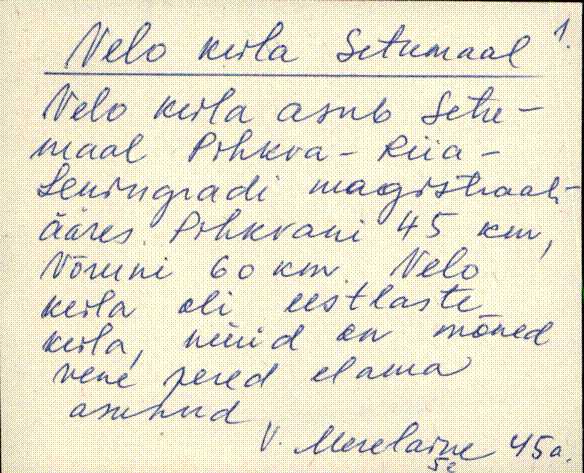 1.
Velo küla Setumaal
Velo küla asub Setu-
maal Pihkva - Riia -
Leningradi magistraali
ääres. Pihkvani 45 km,
Võruni 60 km. Velo
küla oli eestlaste
küla, nüüd on mõned
vene pered elama
asunud
V. Merelaine 45a.
se